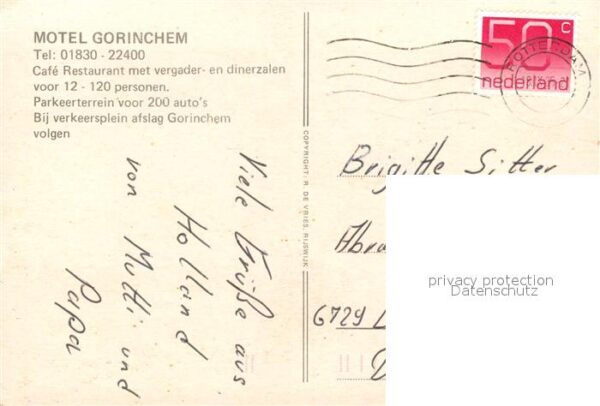 MOTEL GORINCHEM
Tel: 01830 - 22400
Café Restaurant met vergader- en dinerzalen
voor 12 - 120 personen.
Parkeerterrein voor 200 auto's
Bij verkeersplein afslag Gorinchem
volgen
Viele Grüße aus
Holland
von Mutti und
Papa
COPYRIGHT: R. DE VRIES, RIJSWIJK
50 c
nederland
ROTTERDAM
Brigitte Sitter
Abra
6729
privacy protection
Datenschutz